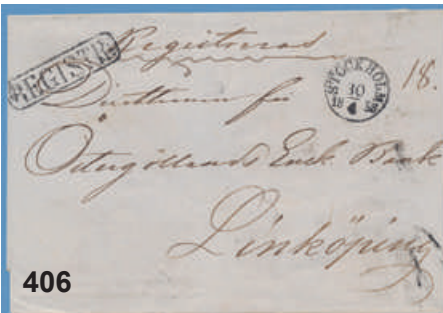 Registrerad
REGISTR.
STOCKHOLM
30
18 4
18.
Direktionen för
Östergötlands Ensk. Bank
Linköping
406